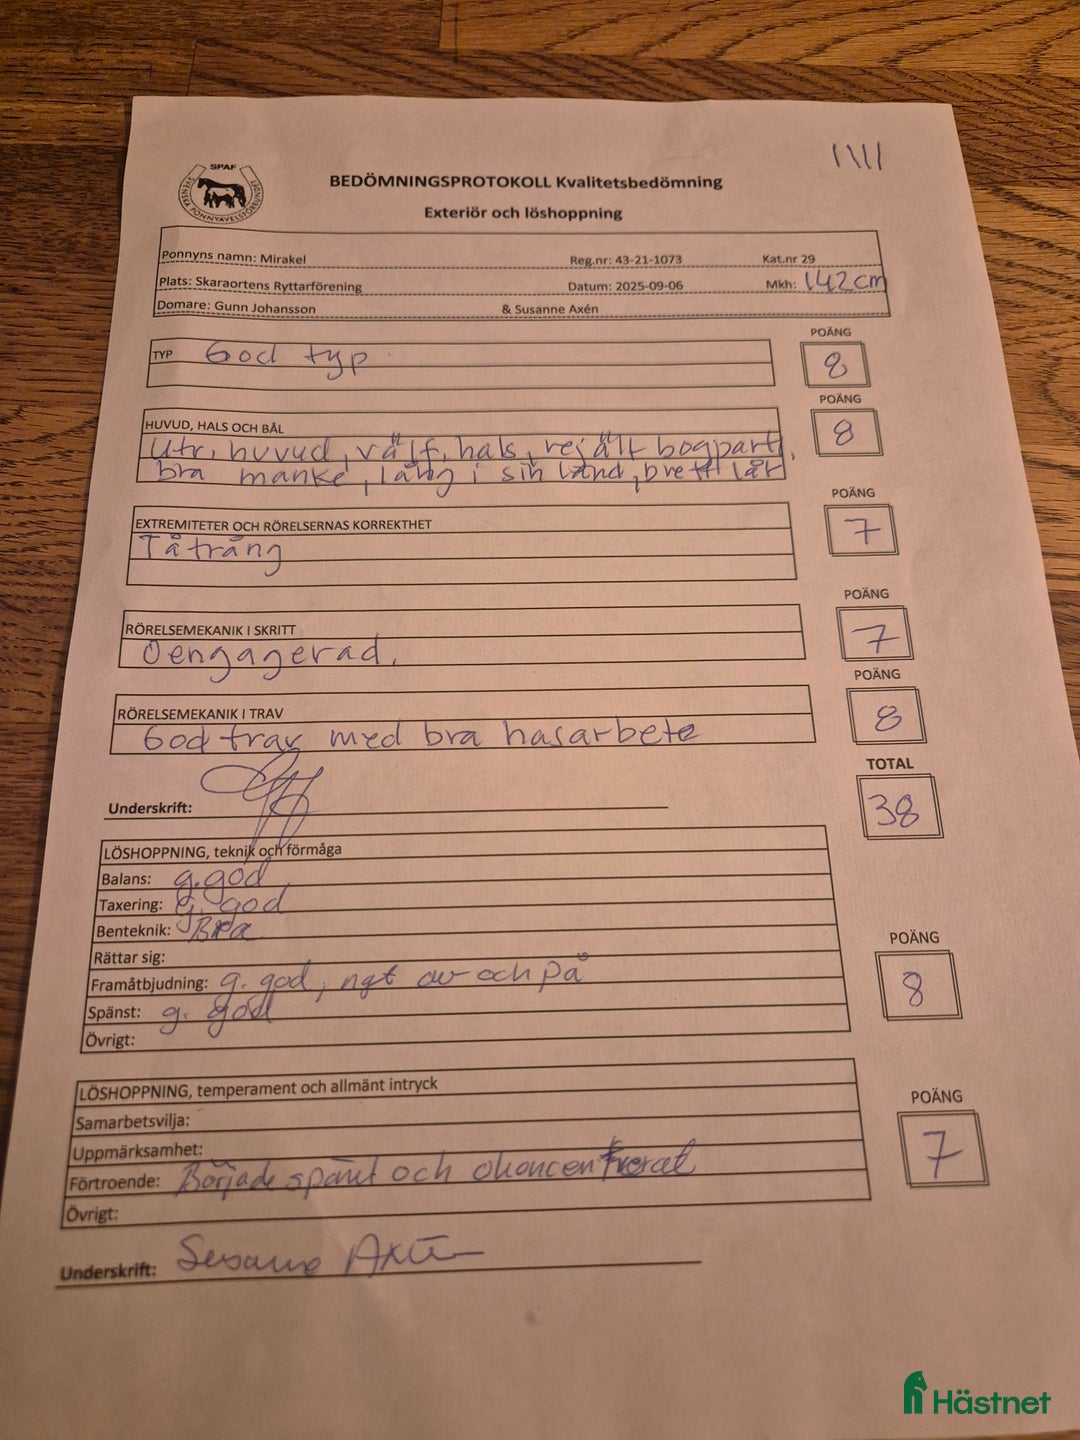 SPAF
SVENSKA PONNYAVELSFÖRBUNDET
BEDÖMNINGSPROTOKOLL Kvalitetsbedömning
Exteriör och löshoppning
Ponnyns namn: Mirakel Reg.nr: 43-21-1073 Kat.nr 29
Plats: Skaraortens Ryttarförening Datum: 2025-09-06 Mkh: 142 cm
Domare: Gunn Johansson & Susanne Axén
POÄNG
TYP God typ 8
POÄNG
HUVUD, HALS OCH BÅL 8
Utr. huvud, välf. hals, rejält bogparti,
bra manke, lång i sin länd, brett lår
POÄNG
EXTREMITETER OCH RÖRELSERNAS KORREKTHET 7
Tåtrång
POÄNG
RÖRELSEMEKANIK I SKRITT 7
Oengagerad.
POÄNG
RÖRELSEMEKANIK I TRAV 8
God trav med bra hasarbete
TOTAL
38
Underskrift:
LÖSHOPPNING, teknik och förmåga
Balans: g. god
Taxering: g. god
Benteknik: Bra
Rättar sig:
POÄNG
Framåtbjudning: g. god, ngt av och på 8
Spänst: g. god
Övrigt:
LÖSHOPPNING, temperament och allmänt intryck
POÄNG
Samarbetsvilja:
Uppmärksamhet: 7
Förtroende: Började spänt och okoncentrerat
Övrigt:
Underskrift: Susanne Axén
Hästnet